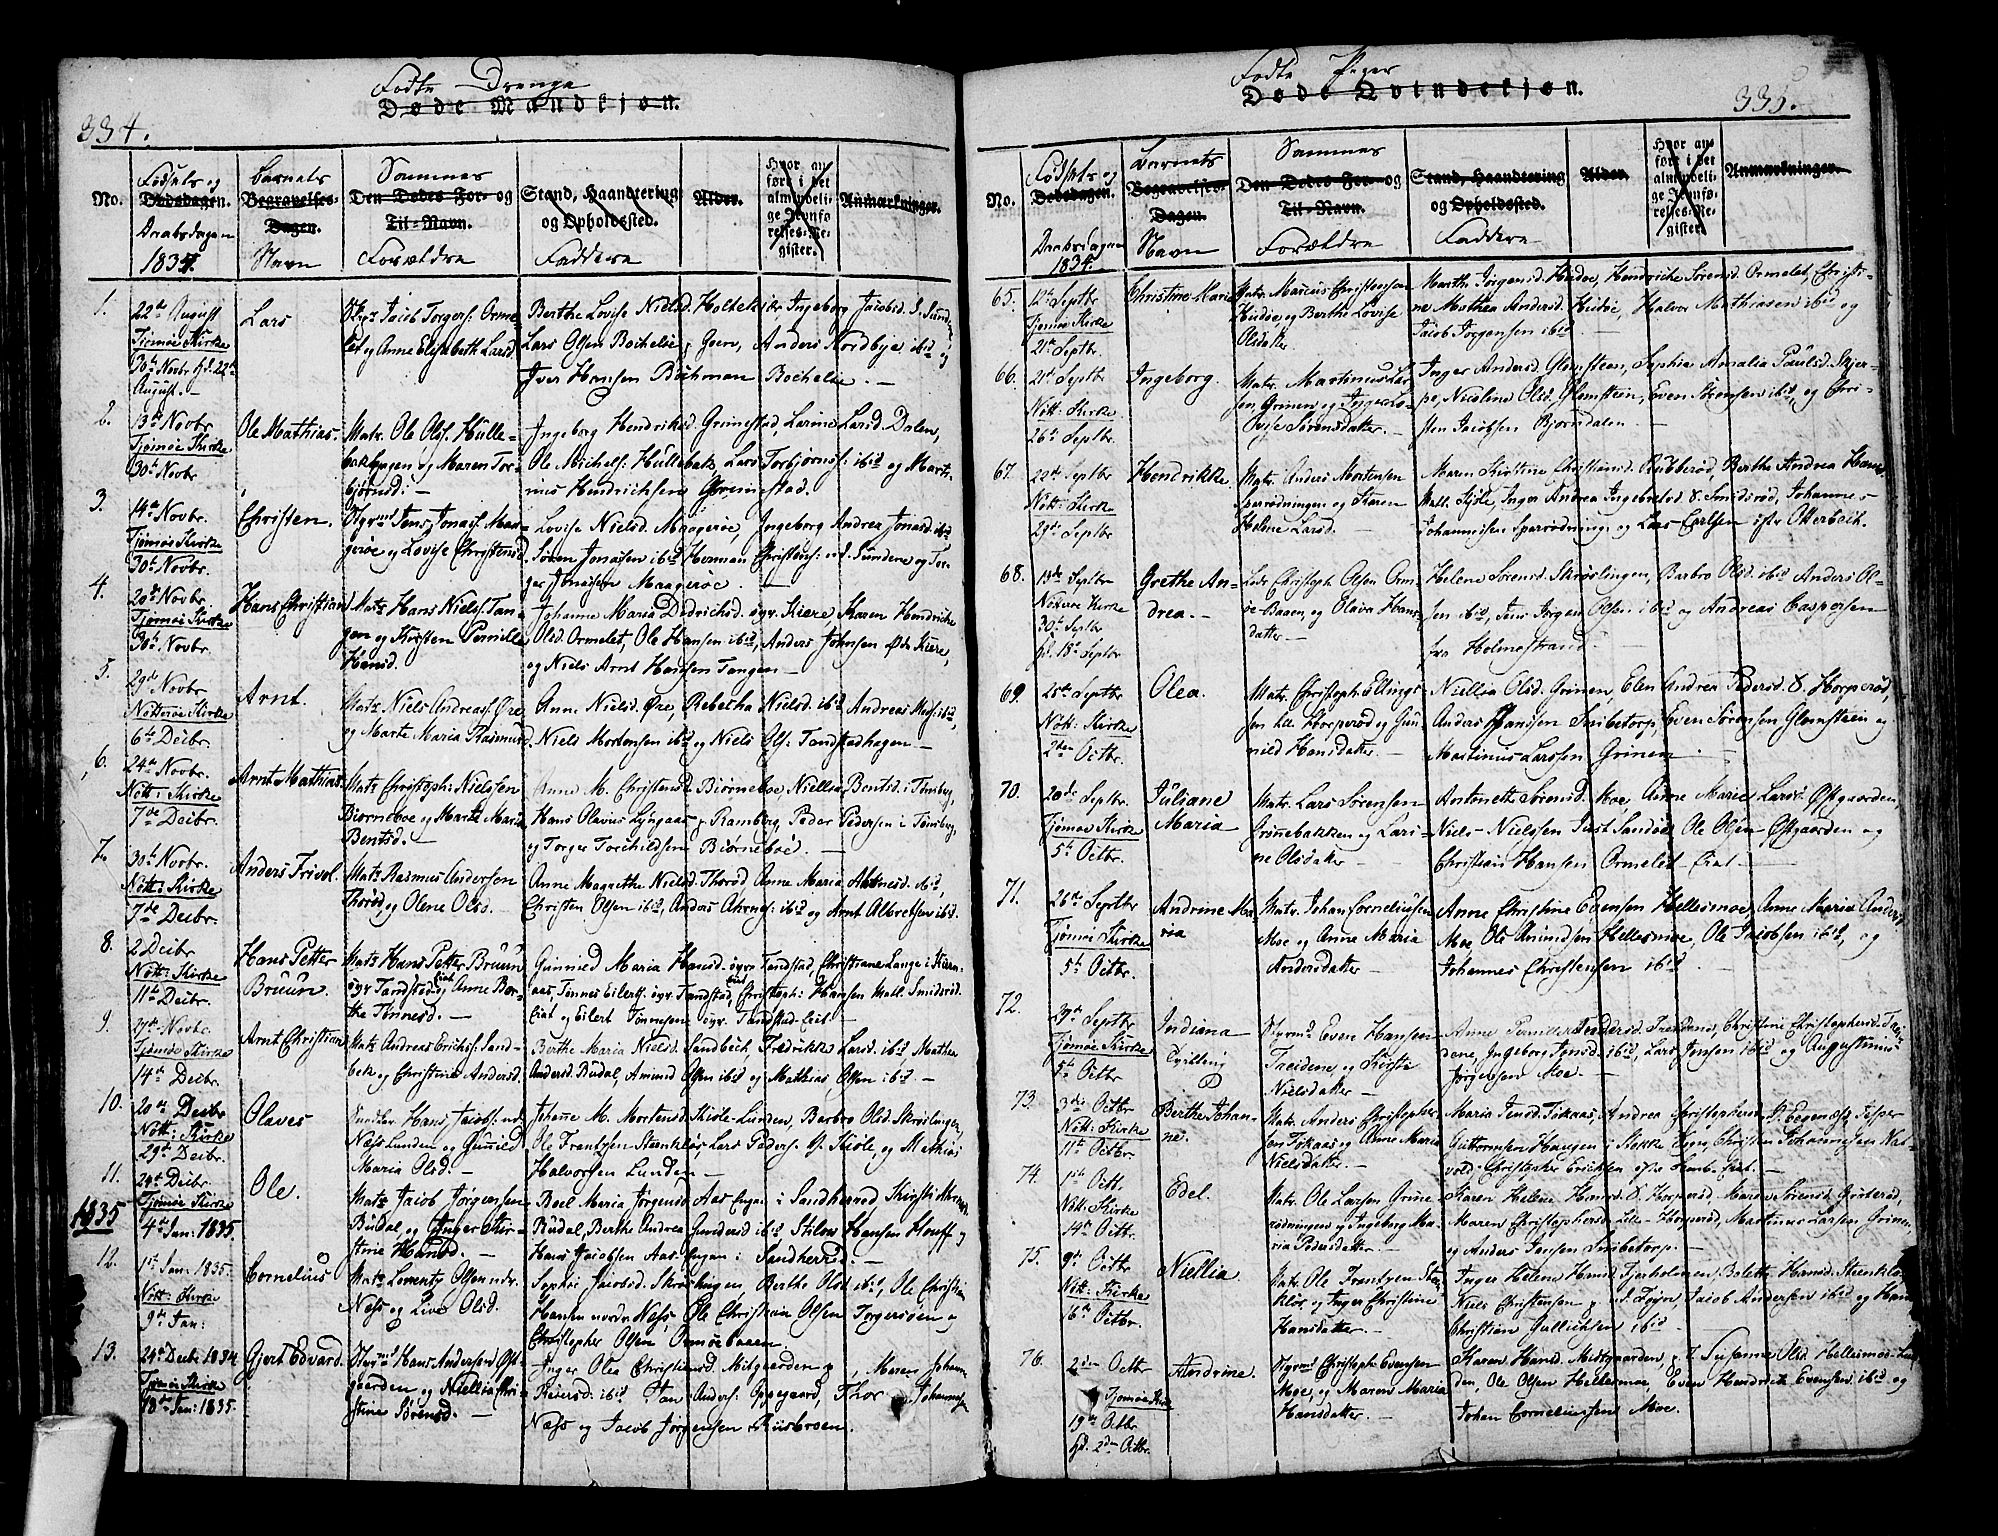 334.
Fødte Drenge
Døde Mandkjøn.
No.
Fødsels og
Dødsdagen.
Daabsdagen
1834.
Barnets
Begravelses-
Dagen.
Navn
Sammes
Den Dødes For- og
Til-Navn.
Forældre
Stand, Haandtering
og Opholdssted.
Faddere
Alder.
Hvor an-
ført i det
almindeli-
ge Jevnfø-
relses-Re-
gister.
Anmærkninger.
1.
22de August
Tjømøe Kirke
30te Novbr hd. 22de
August. –
Lars
Jacob Torger: Orme-
let og Anne Elisabeth Larsd.
Berthe Lovise Nielsd. Holtek Ingeborg Jacobsd. Sunde
Lars Olsen Bøchelie, Anders Nordbye ibid og
Iver Hansen Buhman Bøchelie. –
2.
13de Novbr
Tjømøe Kirke
30te Novbr
Ole Mathias.
Matr. Ole Olss. Hulle-
bakhougen og Maren Tor-
bjørnsd: –
Ingeborg Hendriksd Grimestad, Larine Larsd. Dalen,
Ole Michels: Hullebak, Lars Torbjørns: ibid og Marti-
nus Hendrichsen Grimestad.
3.
14de Novbr.
Tjømøe Kirke
30te Novbr.
Christen.
Jens Jonas: Maa-
gerøe og Lovise Christensd
Lovise Nielsd. Maagerøe, Ingeborg Andrea Jonasd. ibid
Søren Jonassen ibid Herman Christens: Sundene og Tor-
ger Jonassen Maagerøe. –
4.
20de Novbr.
Tjømøe Kirke
30te Novbr.
Hans Christian
Matr. Hans Niels: Tan-
gen og Kirsten Pernille
Hansd.
Johanne Maria Didrichsd. øvr. Kiere Karen Hendrikke
Olsd. Ormelet, Ole Hansen ibid, Anders Johnsen Kiere,
og Niels Arnt Hansen Tangen –
5.
29de Novbr
Nøtterøe Kirke
6te Decbr.
Arnt.
Matr. Niels Andreas: Øre
og Marte Maria Rasmusd.
Anne Nielsd. Øre, Rebetha Nielsd. ibid, Andreas ibid,
Niels Mortensen ibid og Niels Ols: Tandstadhagen –
6.
24de Novbr.
Nøtt: Kirke
7de Decbr.
Arnt Mathias.
Matr. Christoph: Nielssen
Biørneboe og Marte Maria
Bentsd. –
Anne M. Christensd Biørneboe, Niellia Bentsd. i Tønsberg,
Hans Olavius Lyngaas p Ramberg, Peder Pedersen i Tønsberg,
og Torger Torchildsen Biørneboe. –
7.
30te Novbr.
Nøtt: Kirke
7de Decbr.
Anders Trivol.
Matr. Rasmus Andersen
Thorød, og Olene Olsd. –
Anne Magrethe Nielsd. Thorød Anne Maria ibid,
Christen Olsen ibid, Anders ibid og Arnt Albretsen ibid.
8.
2 Decbr
Nøtt: Kirke
11te Decbr.
Hans Petter
Bruun.
Matr. Hans Petter Bruun
øvr Tandstad og Anne Bor-
the Tønnesd. –
Gunnied Maria Hansd. øvr Tandstad, Christiane Lange i
Tønnes Eilert: øvr. Tandstad, Christoph: Hansen Matl. Smidsrød
og Eilert Tønnesen øvr. Tandstad –
9.
27de Novbr.
Tjømøe Kirke
14de Decbr.
Arnt Christian
Matr. Andreas Erichs: Sand-
bek og Christine Andersd.
Berthe Maria Nielsd. Sandbech, Fredrikke Larsd. ibid Mathea
Andersd. Rødal, Amund Olsen ibid og Mathias Olsen ibid. –
10.
20de Decbr
Nøtt: Kirke
29de Decbr.
Olaves
Hans Jacobs:
Næss Lunden og Gunild
Maria Olsd. –
Johanne M. Mortensd. Kiøle-Lunden, Barbro Olsd. Skrøslingen,
Ole Frantzsen Steenkløs, Lars Peders: Kiøle, og Mathias
Halvorsen Lunden –
11.
24de Decbr.
Tjømøe Kirke
1835 4de Jan: 1835.
Ole.
Matr. Jacob Jørgensen
Rødal, og Inger Kir-
stine Hansd. –
Boel Maria Jørgensd Aas Engen i Sandherred, Kirsti
Rødal, Berthe Andrea Gundersd. ibid, Hansen Houff og
Hans Jacobsen Aas-Engen i Sandherred. –
12.
1ste Jan: 1835.
Nøtt: Kirke
9de Jan:
Cornelius
Matr. Lorentz Olsen
Næss og Live Olsd.
Sophie Jacobsd. Skrøslingen, Berthe Olsd. ibid, Ole Christian
Hansen nordre Næss, Ole Christian Olsen Torgersøen og
Christopher Olsen Ormøebaaen.
13.
24de Decbr. 1834
Tjømøe Kirke
18de Jan: 1835.
Gjert Edvard
Hans Andersen Øst-
gaarden, og Niellia Chri-
stine Sørensd. –
Inger Olea Christensd Mitgaarden og Maren Johann
Reiersd. ibid, Jan Anders: Oppegaard, Thor Johannes
Næss og Jacob Jørgensen Rusbroen.
335.
Fødte Piger
Døde Qvindekjøn.
No.
Fødsels og
Dødsdagen.
Daabsdagen
1834.
Barnets
Begravelses-
Dagen.
Navn
Sammes
Den Dødes For- og
Til-Navn.
Forældre
Stand, Haandtering
og Opholdssted.
Faddere
Alder.
Hvor an-
ført i det
almindeli-
ge Jevnfø-
relses-Re-
gister.
Anmærkninger.
65.
12te Septbr
Tjømøe Kirke
21de Septbr.
Christine Marie
Matr. Marcus Christensen
Hudøe og Berthe Lovise
Olsdatter
Marthe Jørgensd. Hudøe, Hendriche Sørensd. Ormelet, Christi-
ne Mathea Andersd. Hudøe, Halvor Mathiasen ibid og
Jacob Jørgensen ibid. –
66.
21de Septbr.
Nøtt: Kirke
26de Septbr.
Ingeborg.
Matr. Martinus Lar-
sen, Grinen, og Inger Lo-
vise Sørensdatter. –
Inger Andersd. Glomsteen, Sophia Amalia Paulsd. Skjer-
pe, Nicoline Olsd. Glomstein, Even Sørensen ibid, og Chri-
sten Jacobsen Bjørndalen. –
67.
22de Septbr
Nøtt: Kirke
29de Septbr
Hendrikke.
Matr. Anders Mortensen
Sparrødningen og Karen
Helene Larsd.
Maren Kirstine Christiansd. Rubberød, Berthe Andrea Hansd.
Matl. Kiøle, Inger Andrea Ingebretsd. S. Smidsrød, Johannes
Johannissen Sparrødning, og Lars Carlsen Otterbeck.
68.
13de Septbr
Nøtterøe Kirke
30te Septbr
hd. 18de Septbr
Grethe An-
drea. –
Lods Christoph Olsen Orm-
øe-Baaen, og Olava Hans-
datter –
Helene Sørensd. Skrøslingen, Barbro Olsd. ibid Anders Ol-
sen ibid, Jens Jørgen Olsen ibid og Andreas Caspersen
fra Holmestrand –
69.
25de Septbr
Nøtt: Kirke
2den Octbr.
Olea.
Matr. Christoph: Elling-
sen Horperød og Gun-
nild Hansdatter. –
Niellia Olsd. Grinen, Elen Andrea Pedersd. S. Horperød,
Anders Hansen Smibetorp, Even Sørensen Glomstein og
Martinus Larssen Grinen –
70.
20de Septbr.
Tjømøe Kirke
5te Octbr.
Juliane
Maria
Matr. Lars Sørensen
Grønebakken og Lars-
ne Olsdatter –
Antonette Sørensd. Moe, Anne Marie Larsd. Østgaarden,
Niels Nielssen Sandøe, Ole Olsen Østgaarden og
Christian Hansen Ormelet –
71.
26de Septbr
Tjømøe Kirke
5te Octbr.
Andrine Ma-
ria
Matr. Johan Corneliussen
Moe og Anne Maria
Andersdatter –
Anne Christine Evensen Hellesmoe, Anne Maria Andersd
Moe Ole Amundsen Hellesmoe, Ole Jacobsen ibid, og
Johannes Christensen ibid. –
72.
29de Septbr
Tjømøe Kirke
5te Octbr.
Indiana
Tvilling
Even Hansen
Treidene, og Kirste
Nielsdatter –
Anne Pernille Pedersd. Treidene, Christine Christophersd. Trei-
dene, Ingeborg Jensd. ibid, Lars Jensen ibid og Augustinus
Jørgensen Moe –
73.
3die Octbr
Nøtt: Kirke
11te Octbr.
Berthe Johan-
ne.
Matr. Anders Christopher-
sen Fokaas, og Anne Maria
Nielsdatter. –
Maria Jensd. Fokaas, Andrea Christophersd. Jesper
Guttormsen Haugen i Stokke Sogn, Christen Johannesen
Christopher Erichsen
74.
1ste Octb.
Nøtt. Kirke
14de Octbr.
Edel.
Matr. Ole Larsen Grine-
rødningen og Ingeborg Ma-
ria Pedersdatter. –
Karen Helene Hansd. S. Horperød, Maren Sørensd. Grøterød,
Maren Christophersd. Lille-Horperød, Martinus Larsen Grinen,
og Anders Jensen Smibetorp. –
75.
9de Octbr
Nøtt. Kirke
16de Octbr.
Niellia.
Matr. Ole Frantzen Steen-
kløs, og Inger Christine
Hansdatter. –
Inger Helene Hansd. Fjerholmen, Bolette Hansd. Steenkløs
Niels Christensen Føyen, Jacob Andersen ibid og Hans
Christian Gullichsen ibid –
76.
2den Octbr
Tjømøe Kirke
19de Octbr
hd. 2den Octbr.
Andrine.
Christoph: Evensen
Moe, og Maren Maria
Hansdatter. –
Karen Hansd. Midtgaarden, Susanne Olsd. Hellesmoe-
den, Ole Olsen Hellesmoe, Even Hendrik Evensen ibid og
Johan Corneliussen Moe. –